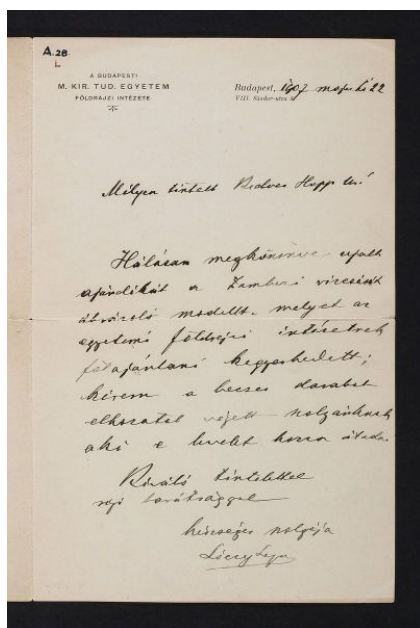 A.28
L
A BUDAPESTI
M. KIR. TUD. EGYETEM
FÖLDRAJZI INTÉZETE
Budapest, 1907 május hó 22
VIII. Sándor-utca 8.
Mélyen tisztelt Kedves Hopp Úr!
Hálásan megköszönve ujabb
ajándékát a Zambezi vizesését
ábrázoló modellt, melyet az
egyetemi földrajzi intézetnek
fölajánlani kegyeskedett;
kérem a becses darabot
elhozatal végett szolgánknak
aki e levelet hozza átadni.
Kiváló tisztelettel
régi barátsággal
készséges szolgája
Lóczy Lajos